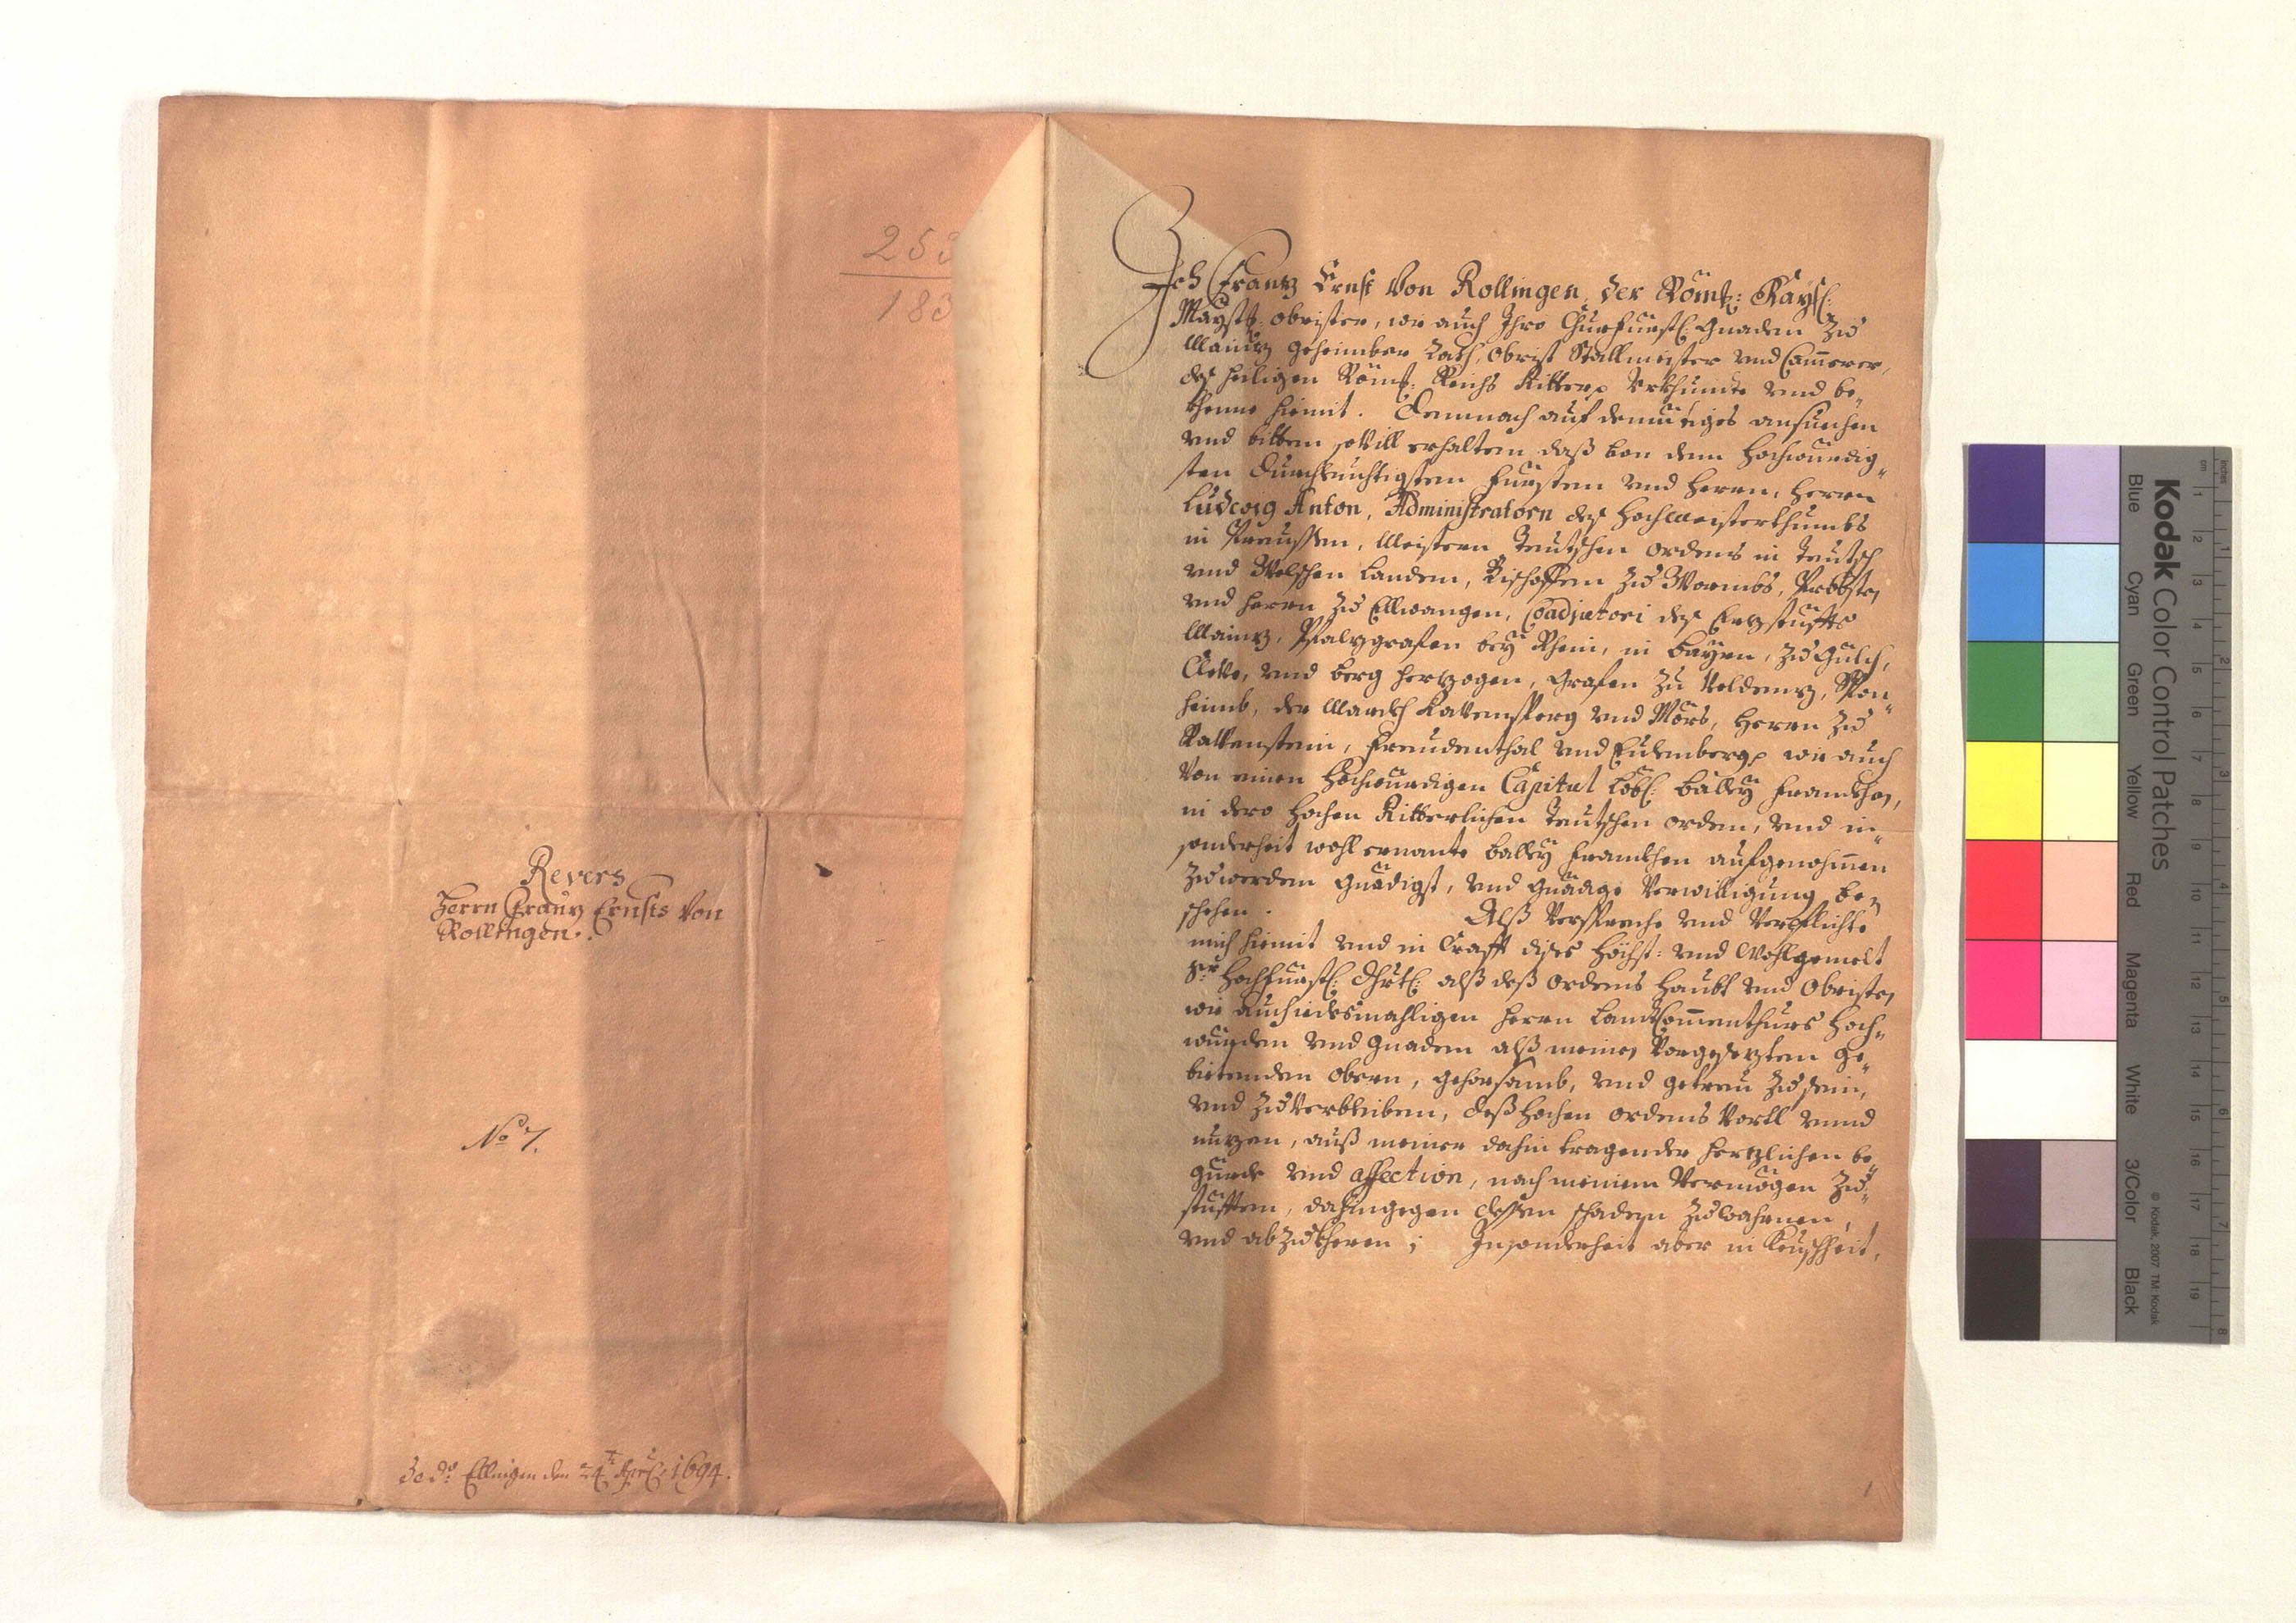 253
183
Revers
Herrn Frantz Ernsts von
Rollingen.
No 7.
de do Ellingen den 24t April 1694.
Ich Frantz Ernst von Rollingen, der Römb: Kayßl:
Maystt: obrister, wie auch Ihro Churfürstl: Gnaden zu
Maintz geheimber Rath, obrist Stallmeister vnd Cammerer,
deß heiligen Römb: Reichs Ritter, Vrkhunde vnd be„
khenne hiemit. Demnach auf demütiges ansuchen
vnd bitten, sovill erhalten daß von dem Hochwürdig„
sten Durchleuchtigsten Fürsten vnd Herrn, Herrn
Ludwig Anton, Administratorn deß Hochmeisterthumbs
in Preussen, Meistern Teutschen ordens in Teutsch
vnd Welschen Landen, Bischoffen zu Wormbs, Probsten
vnd Herrn zu Ellwangen, Coadjutori deß Ertzstiffts
Maintz, Pfaltzgrafen bey Rhein, in Bayrn, zu Gülch,
Cleve, vnd Berg Hertzogen, Grafen zu Veldentz, Spon„
heimb, der Marckh Ravensperg vnd Mörs, Herrn zu
Ravenstein, Freudenthal vnd Eulenberg, wie auch
von einen Hochwürdigen Capitul Löbl: Balley Franckhen,
in dero Hochen Ritterlichen Teutschen orden, vnd in„
sonderheit wohl ernante Balley Franckhen aufgenohmen
zuwerden gnädigst, vnd gnädige verwilligung be„
schehen. Alß verspreche vnd verpflichte
mich hiemit vnd in Crafft dises höchst: vnd wohlgemelt
Sr Hochfürstl: Dhrtl: alß deß ordens Haubt vnd Obristen
wie auch iedesmahligen Herrn LandtCommenthurs Hoch„
würden vnd Gnaden alß meinen vorgesezten ge„
bietenden obern, gehorsamb, vnd getreu zusein,
vnd zuverbleiben, deß hochen ordens vortl vnnd
nutzen, auß meiner dahin tragender hertzlichen be„
gürde vnd affection, nach meinem vermögen zu„
stifften, dahingegen dessen schaden zuwahrnen,
vnd abzukheren; Insonderheit aber in Keuschheit,
1
Kodak Color Control Patches
Blue Cyan Green Yellow Red Magenta White 3/Color Black
© Kodak, 2007 TM: Kodak
inches 1 2 3 4 5 6 7 8
cm 1 2 3 4 5 6 7 8 9 10 11 12 13 14 15 16 17 18 19